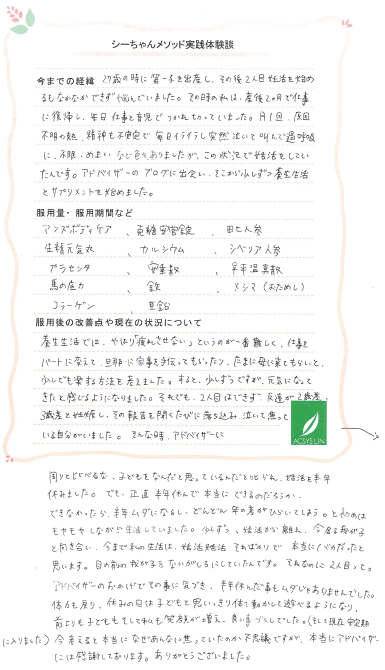 シーちゃんメソッド実践体験談
今までの経緯 27歳の時に第一子を出産し、その後2人目妊活を始め
るもなかなかできず悩んでいました。その時の私は、産後2ヶ月で仕事
に復帰し、毎日仕事と育児でつかれきっていました。月1回、原因
不明の熱、精神も不安定で毎日イライラし突然泣いて叫んで過呼吸
に、不眠・めまいなど色々ありましたが、この状況で妊活をしてい
たんです。アドバイザーのブログに出会い、そこから少しずつ養生生活
とサプリメントを始めました。
服用量・服用期間など
アンズボディケア 、 、 田七人参
生精元気丸 、 カルシウム 、 シベリア人参
プラセンタ 、 安重散 、 早平温異散
馬の底力 、 鉄 、 メシマ(おためし)
コラーゲン 、 亜鉛
服用後の改善点や現在の状況について
養生生活では、やはり「疲れさせない」というのが一番難しく、仕事を
パートに変えて、旦那に家事を手伝ってもらったり、たまに母に来てもらいと、
少しでも楽する方法を考えました。すると、少しずつですが、元気になって
きたと感じるようになりました。それでも、2人目はできず、友達が2歳差、
3歳差と妊娠し、その報告を聞くたびに落ち込み、泣いて焦って
いる自分がいました。そんな時、アドバイザーに
ACSYS LIN
周りと比べるな、子どもをなんだと思っているんだと叱られ、妊活を半年
休みました。でも、正直半年休んで本当にできるのだろうか、
できなかったら、半年ムダになるし、どんどん年の差がひらいてしまう。と初めは
モヤモヤしながら生活していました。少しずつ、妊活から離れ、今居る我が子
と向き合い、今までの私の生活は、妊活妊活そればかりで本当にバカだったと
思います。目の前の我が子をないがしろにしていたんです。それなのに2人目って。
アドバイザーのおかげでその事に気づき、半年休んだ事もムダじゃありませんでした。
体力も戻り、休みの日は子どもと思いっきり体を動かして遊べるようになり、
前よりも子どももそして私も笑顔が増え、良い事づくしでした。(そして現在安定期
に入りました)今考えると本当になぜあんなに焦っていたのか不思議ですが、本当にアドバイザー
には感謝しております。ありがとうございました。